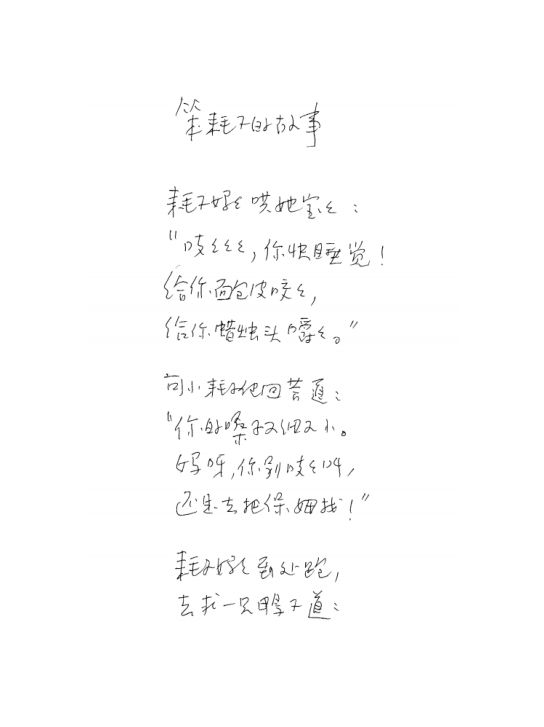 笨耗子的故事
耗子妈々哄她宝々：
“吱々々々，你快睡觉！
给你面包皮咬々，
给你蜡烛头嚼々。”
可小耗子他回答道：
“你的嗓子又细又小。
妈呀，你别吱々叫，
还是去把保姆找！”
耗子妈々到处跑，
去求一只鸭子道：